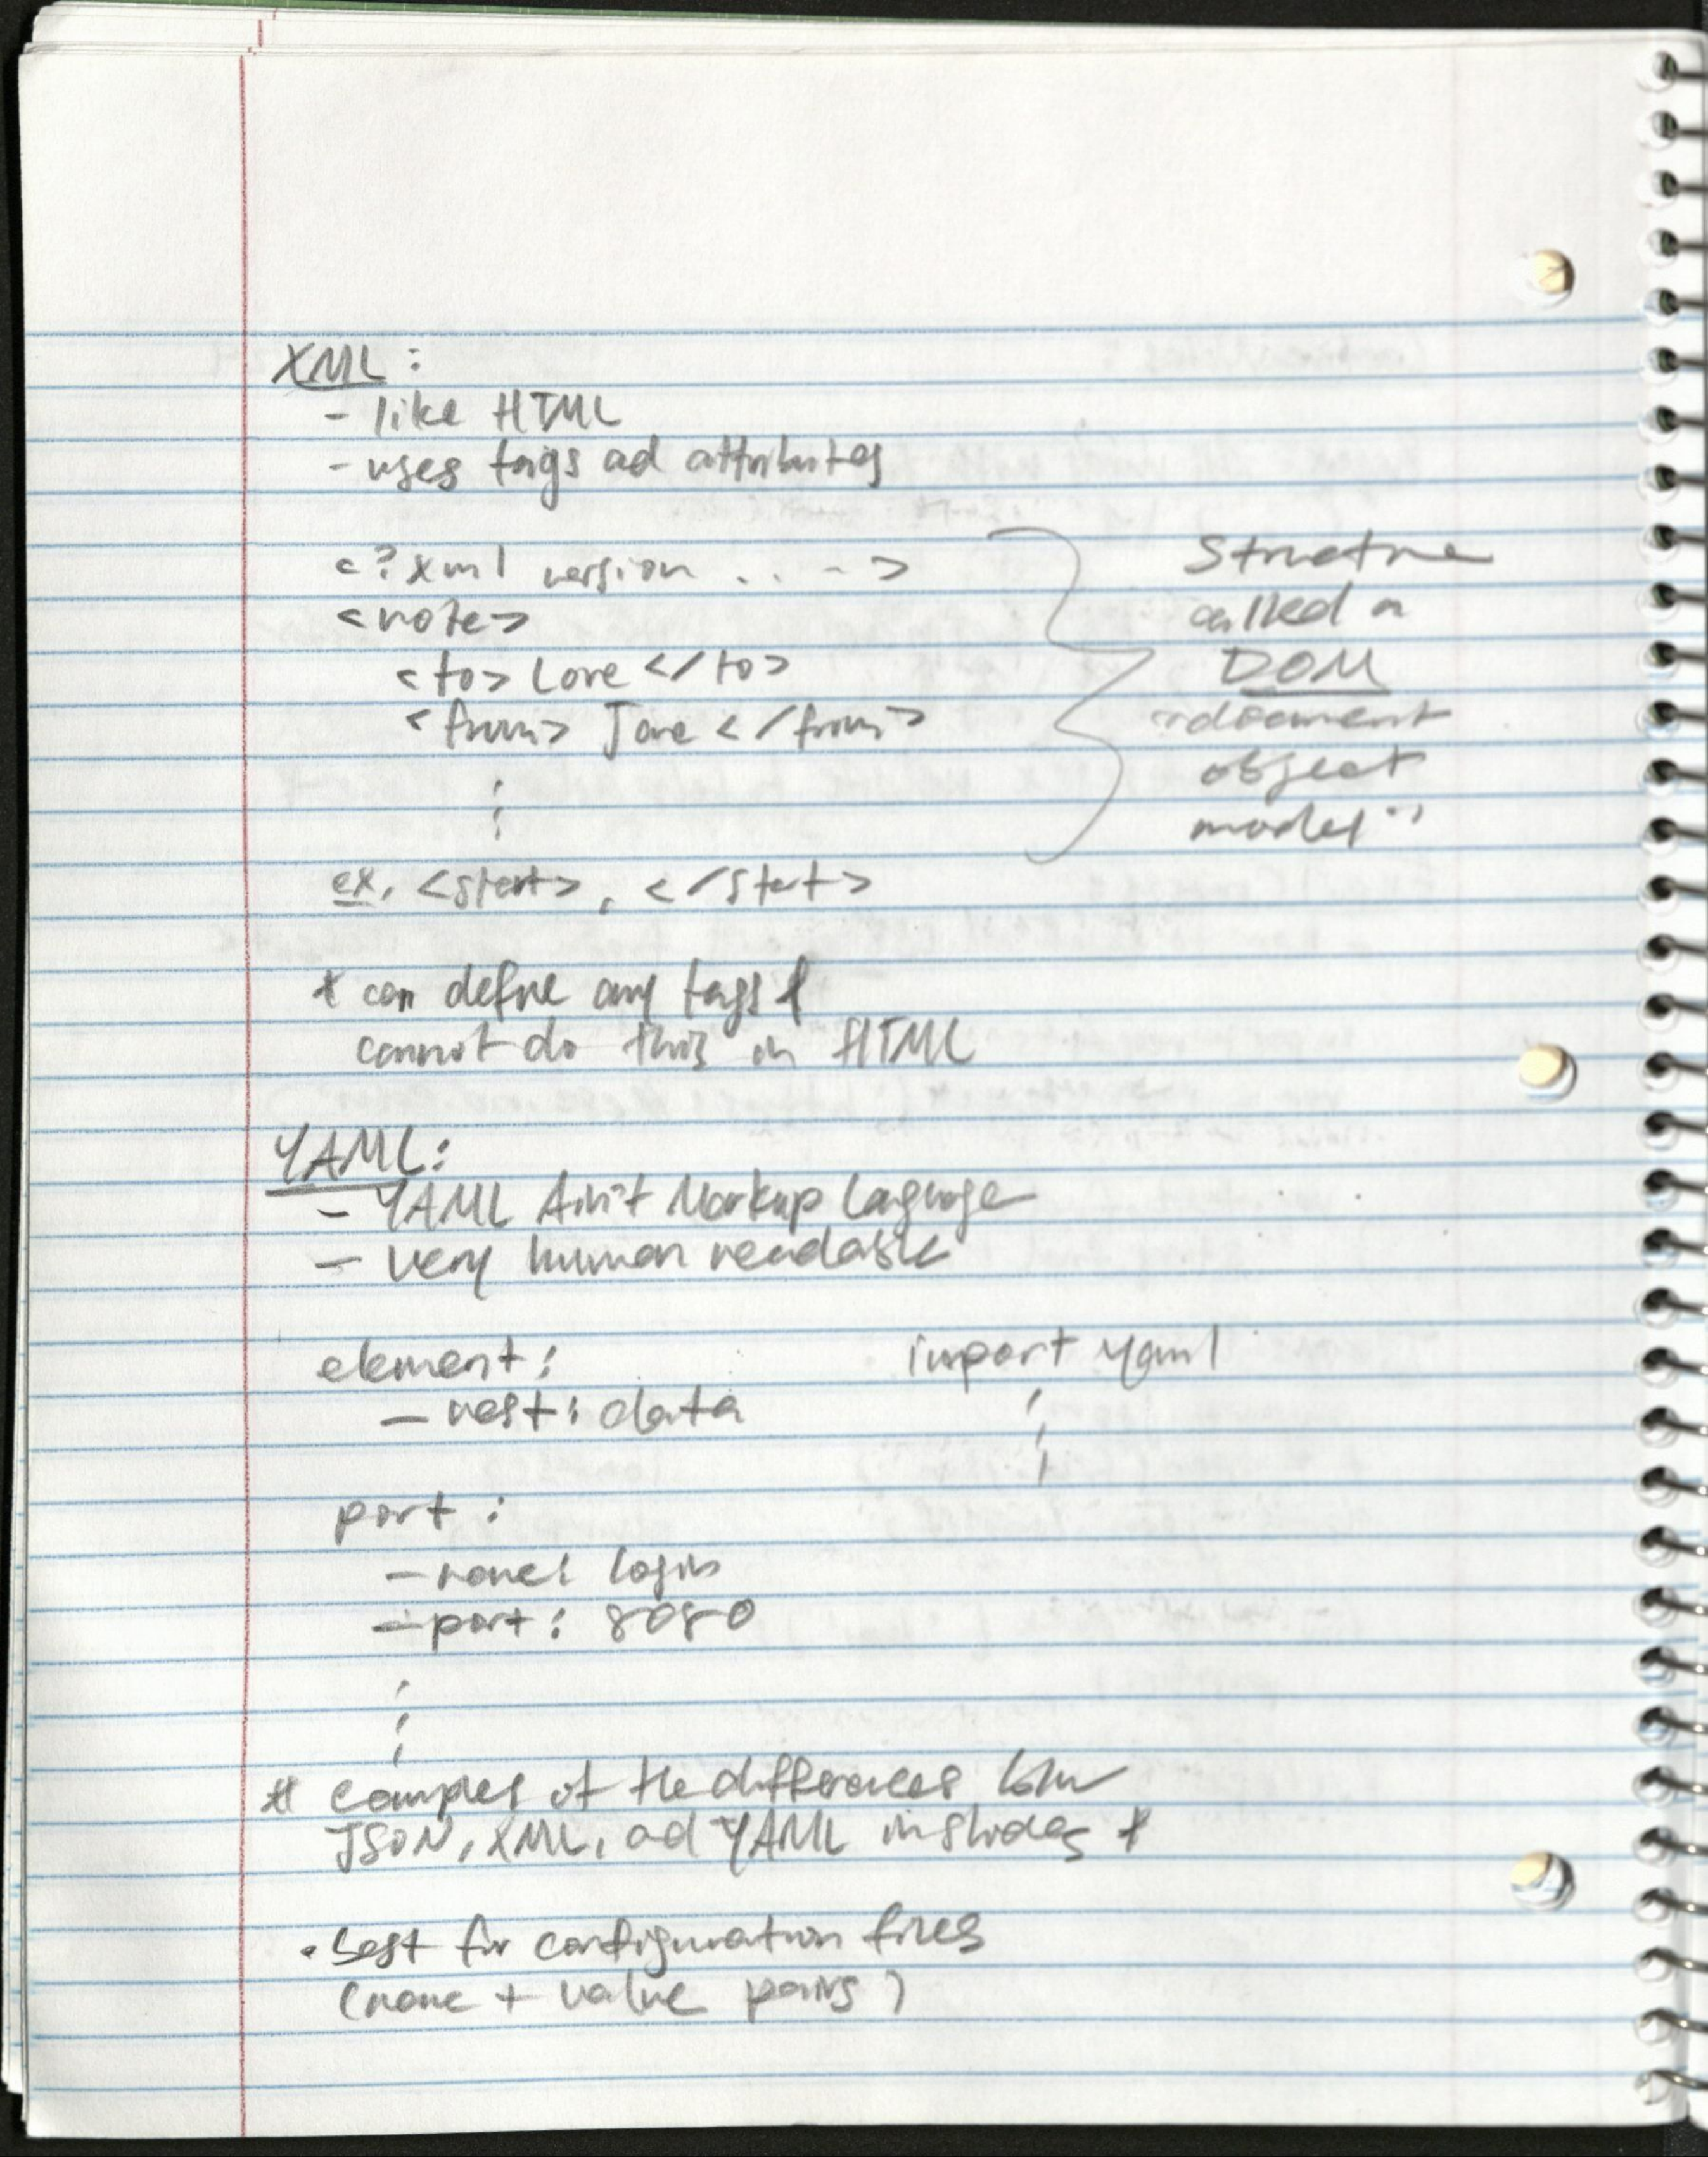 XML:
- like HTML
- uses tags ad attributes
<?xml version . . - ->
<note>
<to> Love </to>
<from> Jane </from>
⋮
Structure
called a
DOM
"document
object
model"
ex. <start>, </start>
* can define any tags *
cannot do this in HTML
YAML:
- YAML Ain't Markup Language
- very human readable
element:
- nest: data
import yaml
⋮
port:
- name: login
- port: 8080
⋮
* examples of the differences btw
JSON, XML, ad YAML in slides *
• best for configuration files
(name + value pairs)